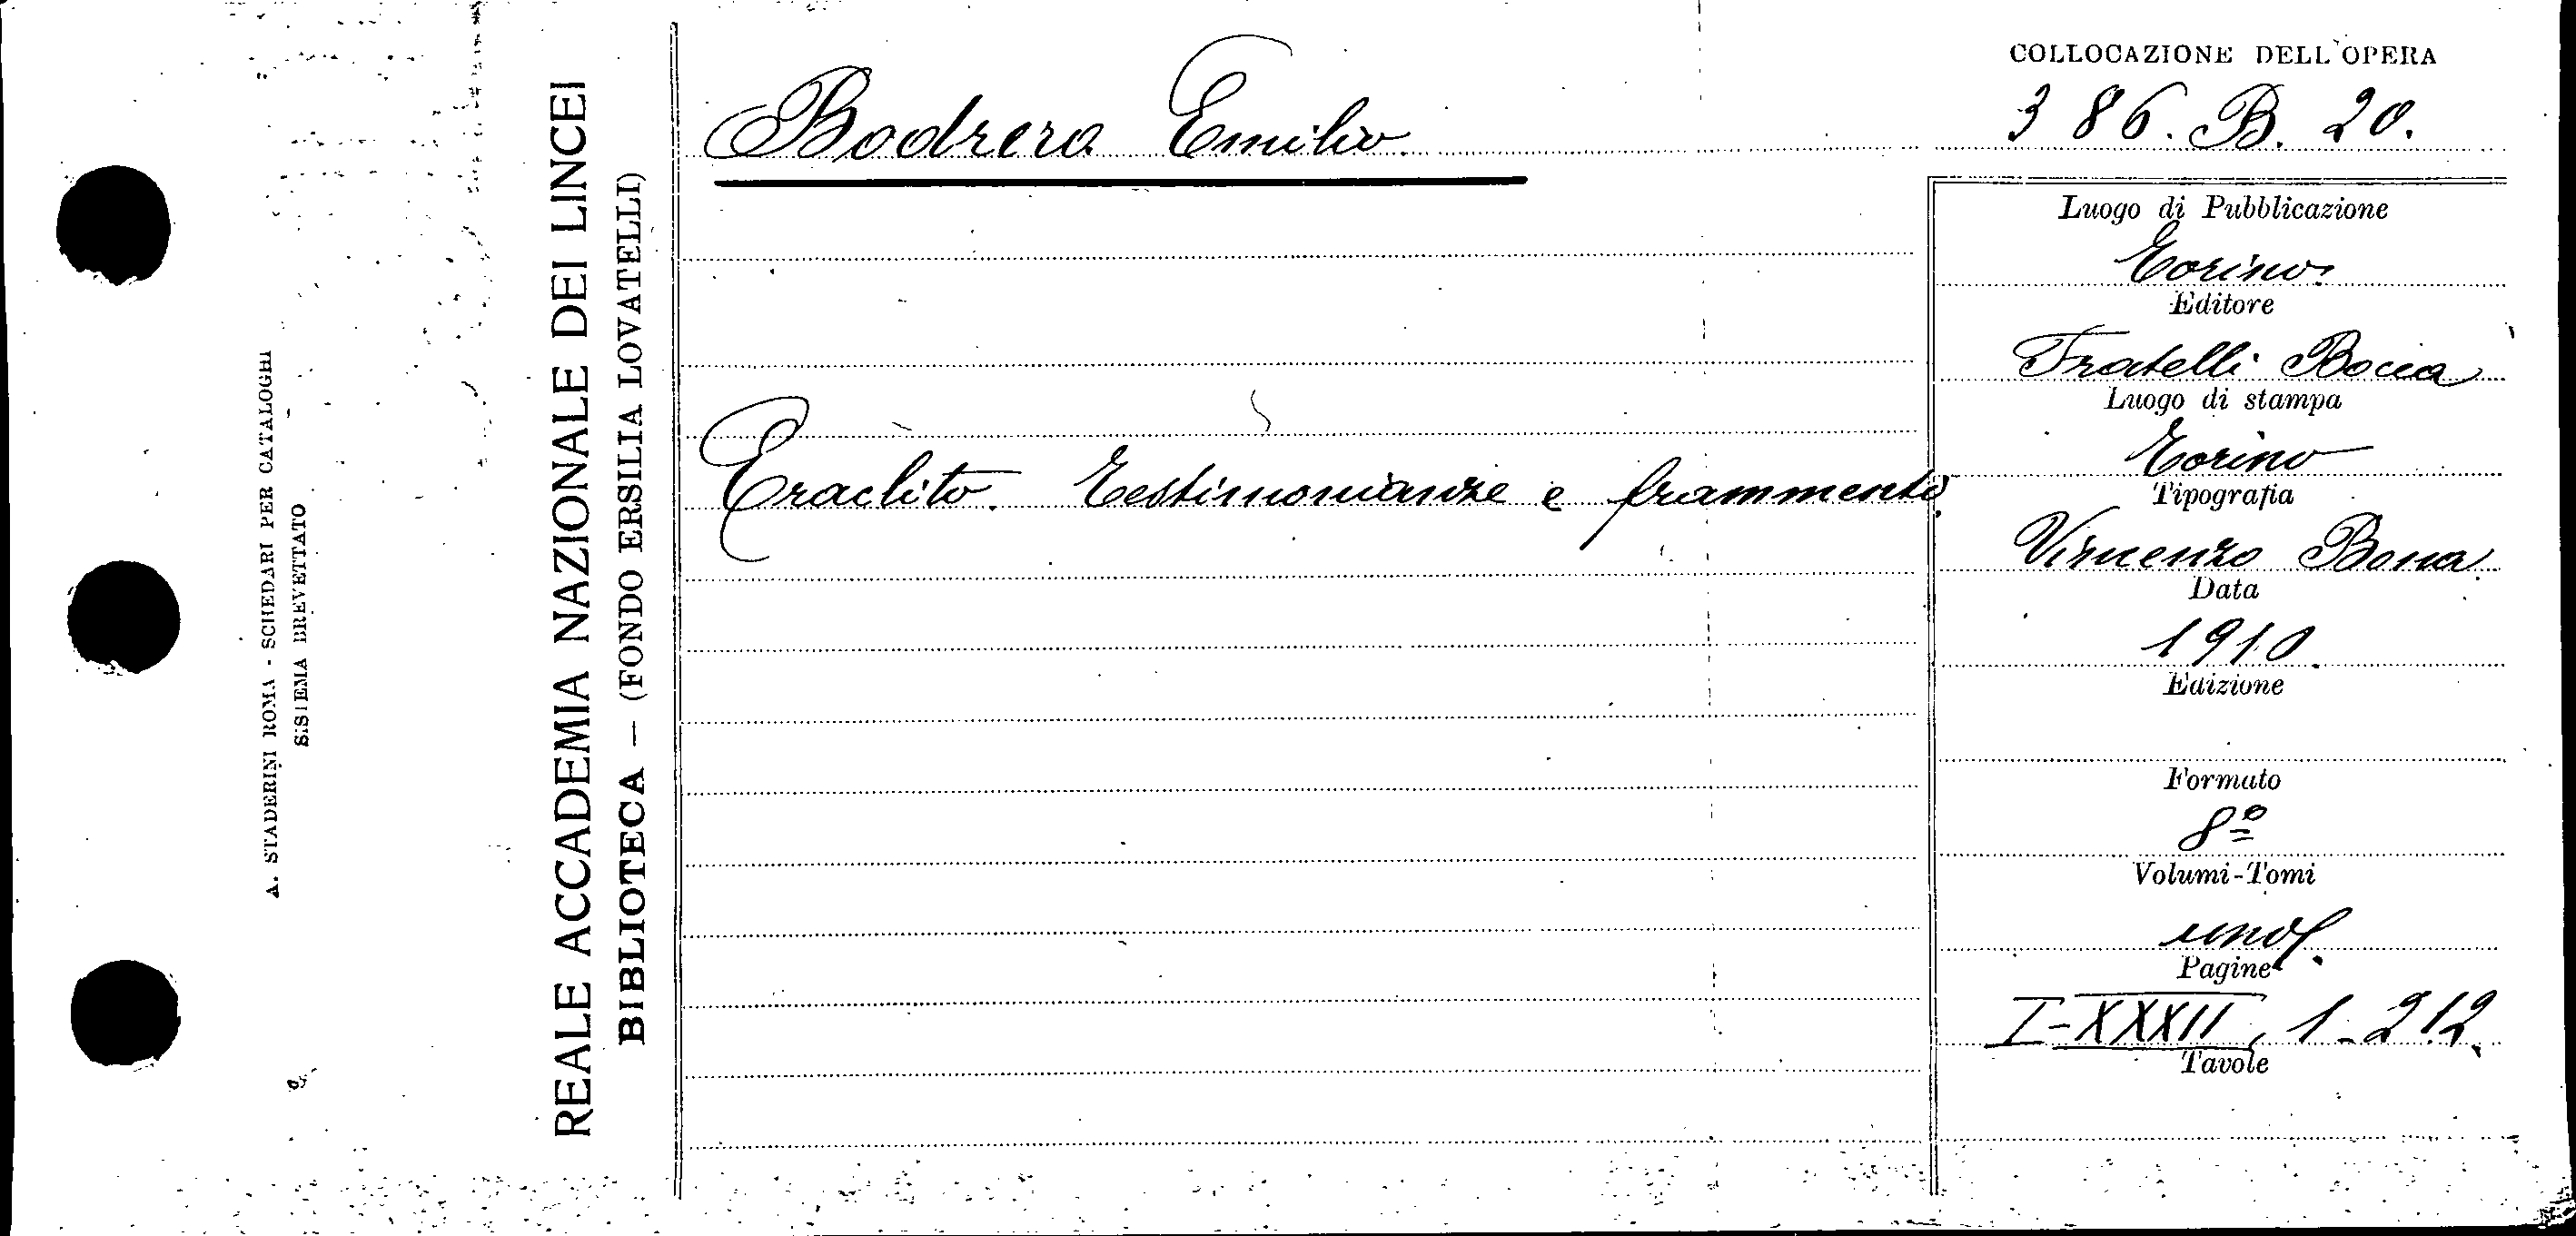 A. STADERINI ROMA - SCHEDARI PER CATALOGHI
SISTEMA BREVETTATO
REALE ACCADEMIA NAZIONALE DEI LINCEI
BIBLIOTECA — (FONDO ERSILIA LOVATELLI)
Bodrero Emilio
Eraclito. Testimonianze e frammenti.
COLLOCAZIONE DELL'OPERA
386. B. 20.
Luogo di Pubblicazione
Torino
Editore
Fratelli Bocca
Luogo di stampa
Torino
Tipografia
Vincenzo Bona
Data
1910.
Edizione
Formato
8º
Volumi-Tomi
uno
Pagine
I-XXXII, 1-212.
Tavole